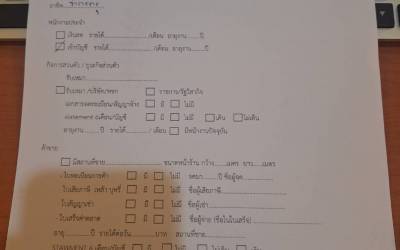 อาชีพ
พนักงานประจำ
☐ เงินสด รายได้................../เดือน อายุงาน......ปี
☑ เข้าบัญชี รายได้................../เดือน อายุงาน......ปี
กิจการส่วนตัว / ธุรกิจส่วนตัว
รับเหมา
☐ รับเหมา /บริษัท/ ☐ ราชการ/รัฐวิสาหกิจ
เอกสารจดทะเบียน/สัญญาจ้าง ☐ มี ☐ ไม่มี
statement 6เดือน/บัญชี ☐ มี ☐ ไม่มี ☐ เดิน ☐ ไม่เดิน
อายุงาน........ปี รายได้................/ เดือน ☐ มีหน้างานปัจจุบัน
ค้าขาย
☐ มีสถานที่ขาย ขนาดหน้าร้าน กว้าง......เมตร ยาว......เมตร
- ใบทะเบียนการค้า ☐ มี ☐ ไม่มี จดมา......ปี ชื่อผู้จด
- ใบเสียภาษี เหล้า บุหรี่ ☐ มี ☐ ไม่มี ชื่อผู้เสียภาษี
- ใบสัญญาเช่า ☐ มี ☐ ไม่มี ชื่อผู้เช่า
- ใบเสร็จค่าตลาด ☐ มี ☐ ไม่มี ชื่อผู้จ่าย (ชื่อในใบเสร็จ)
อายุ............ปี รายได้ต่อวัน................บาท สถานที่ขาย
STATEMENT 6 เดือน/บัญชี ☐ มี ☐ ไม่มี ☐ เดิน